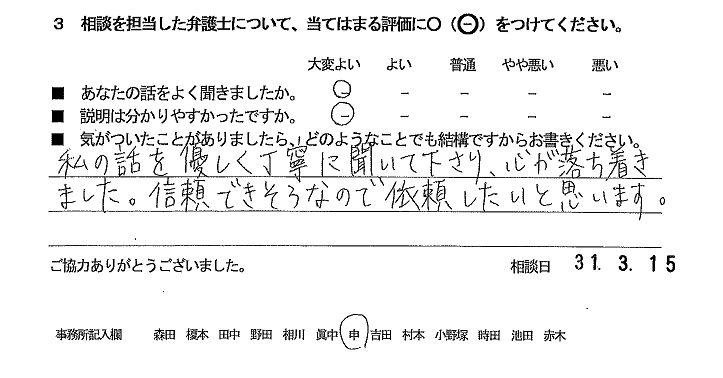 3 相談を担当した弁護士について、当てはまる評価に○(㊀)をつけてください。
大変よい よい 普通 やや悪い 悪い
■ あなたの話をよく聞きましたか。 － － － － －
■ 説明は分かりやすかったですか。 － － － － －
■ 気がついたことがありましたら、どのようなことでも結構ですからお書きください。
私の話を優しく丁寧に聞いて下さり、心が落ち着き
ました。信頼できそうなので依頼したいと思います。
ご協力ありがとうございました。 相談日 31. 3. 15
事務所記入欄 森田 榎本 田中 野田 相川 眞中 申 吉田 村本 小野塚 時田 池田 赤木